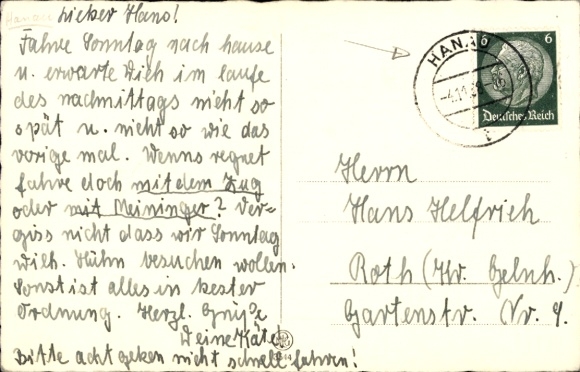 Lieber Hans!
Fahre Sonntag nach hause
u. erwarte Dich im laufe
des nachmittags nicht so
spät u. nicht so wie das
vorige mal. Wenns regnet
fahre doch mit dem Zug
oder mit Meininger? Ver-
giss nicht dass wir Sonntag
Wilh. Hühn besuchen wollen.
Sonst ist alles in bester
Ordnung. Herzl. Grüße
Deine Käte!
Bitte acht geben nicht schnell fahren!
HANAU
-4.11.
6 6
Deutsches Reich
Herrn
Hans Helfrich
Roth (Kr. Gelnh.)
Gartenstr. Nr. 9.